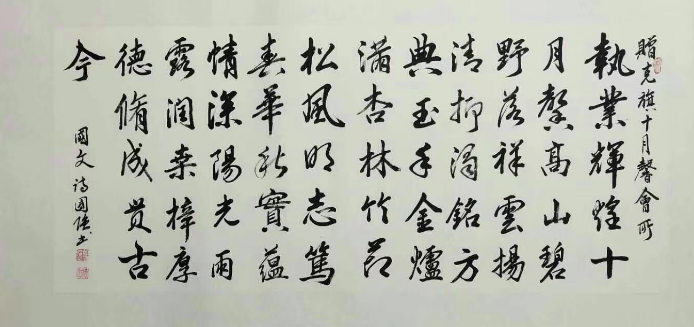 贈克旗十月馨會所
執業輝煌十
月馨高山碧
野落祥雲揚
清抑濁銘方
典玉手金爐
滿杏林竹節
松風明志篤
春華秋實蘊
情深陽光雨
露润桑梓厚
德脩成贯古
今
國文詩國强书